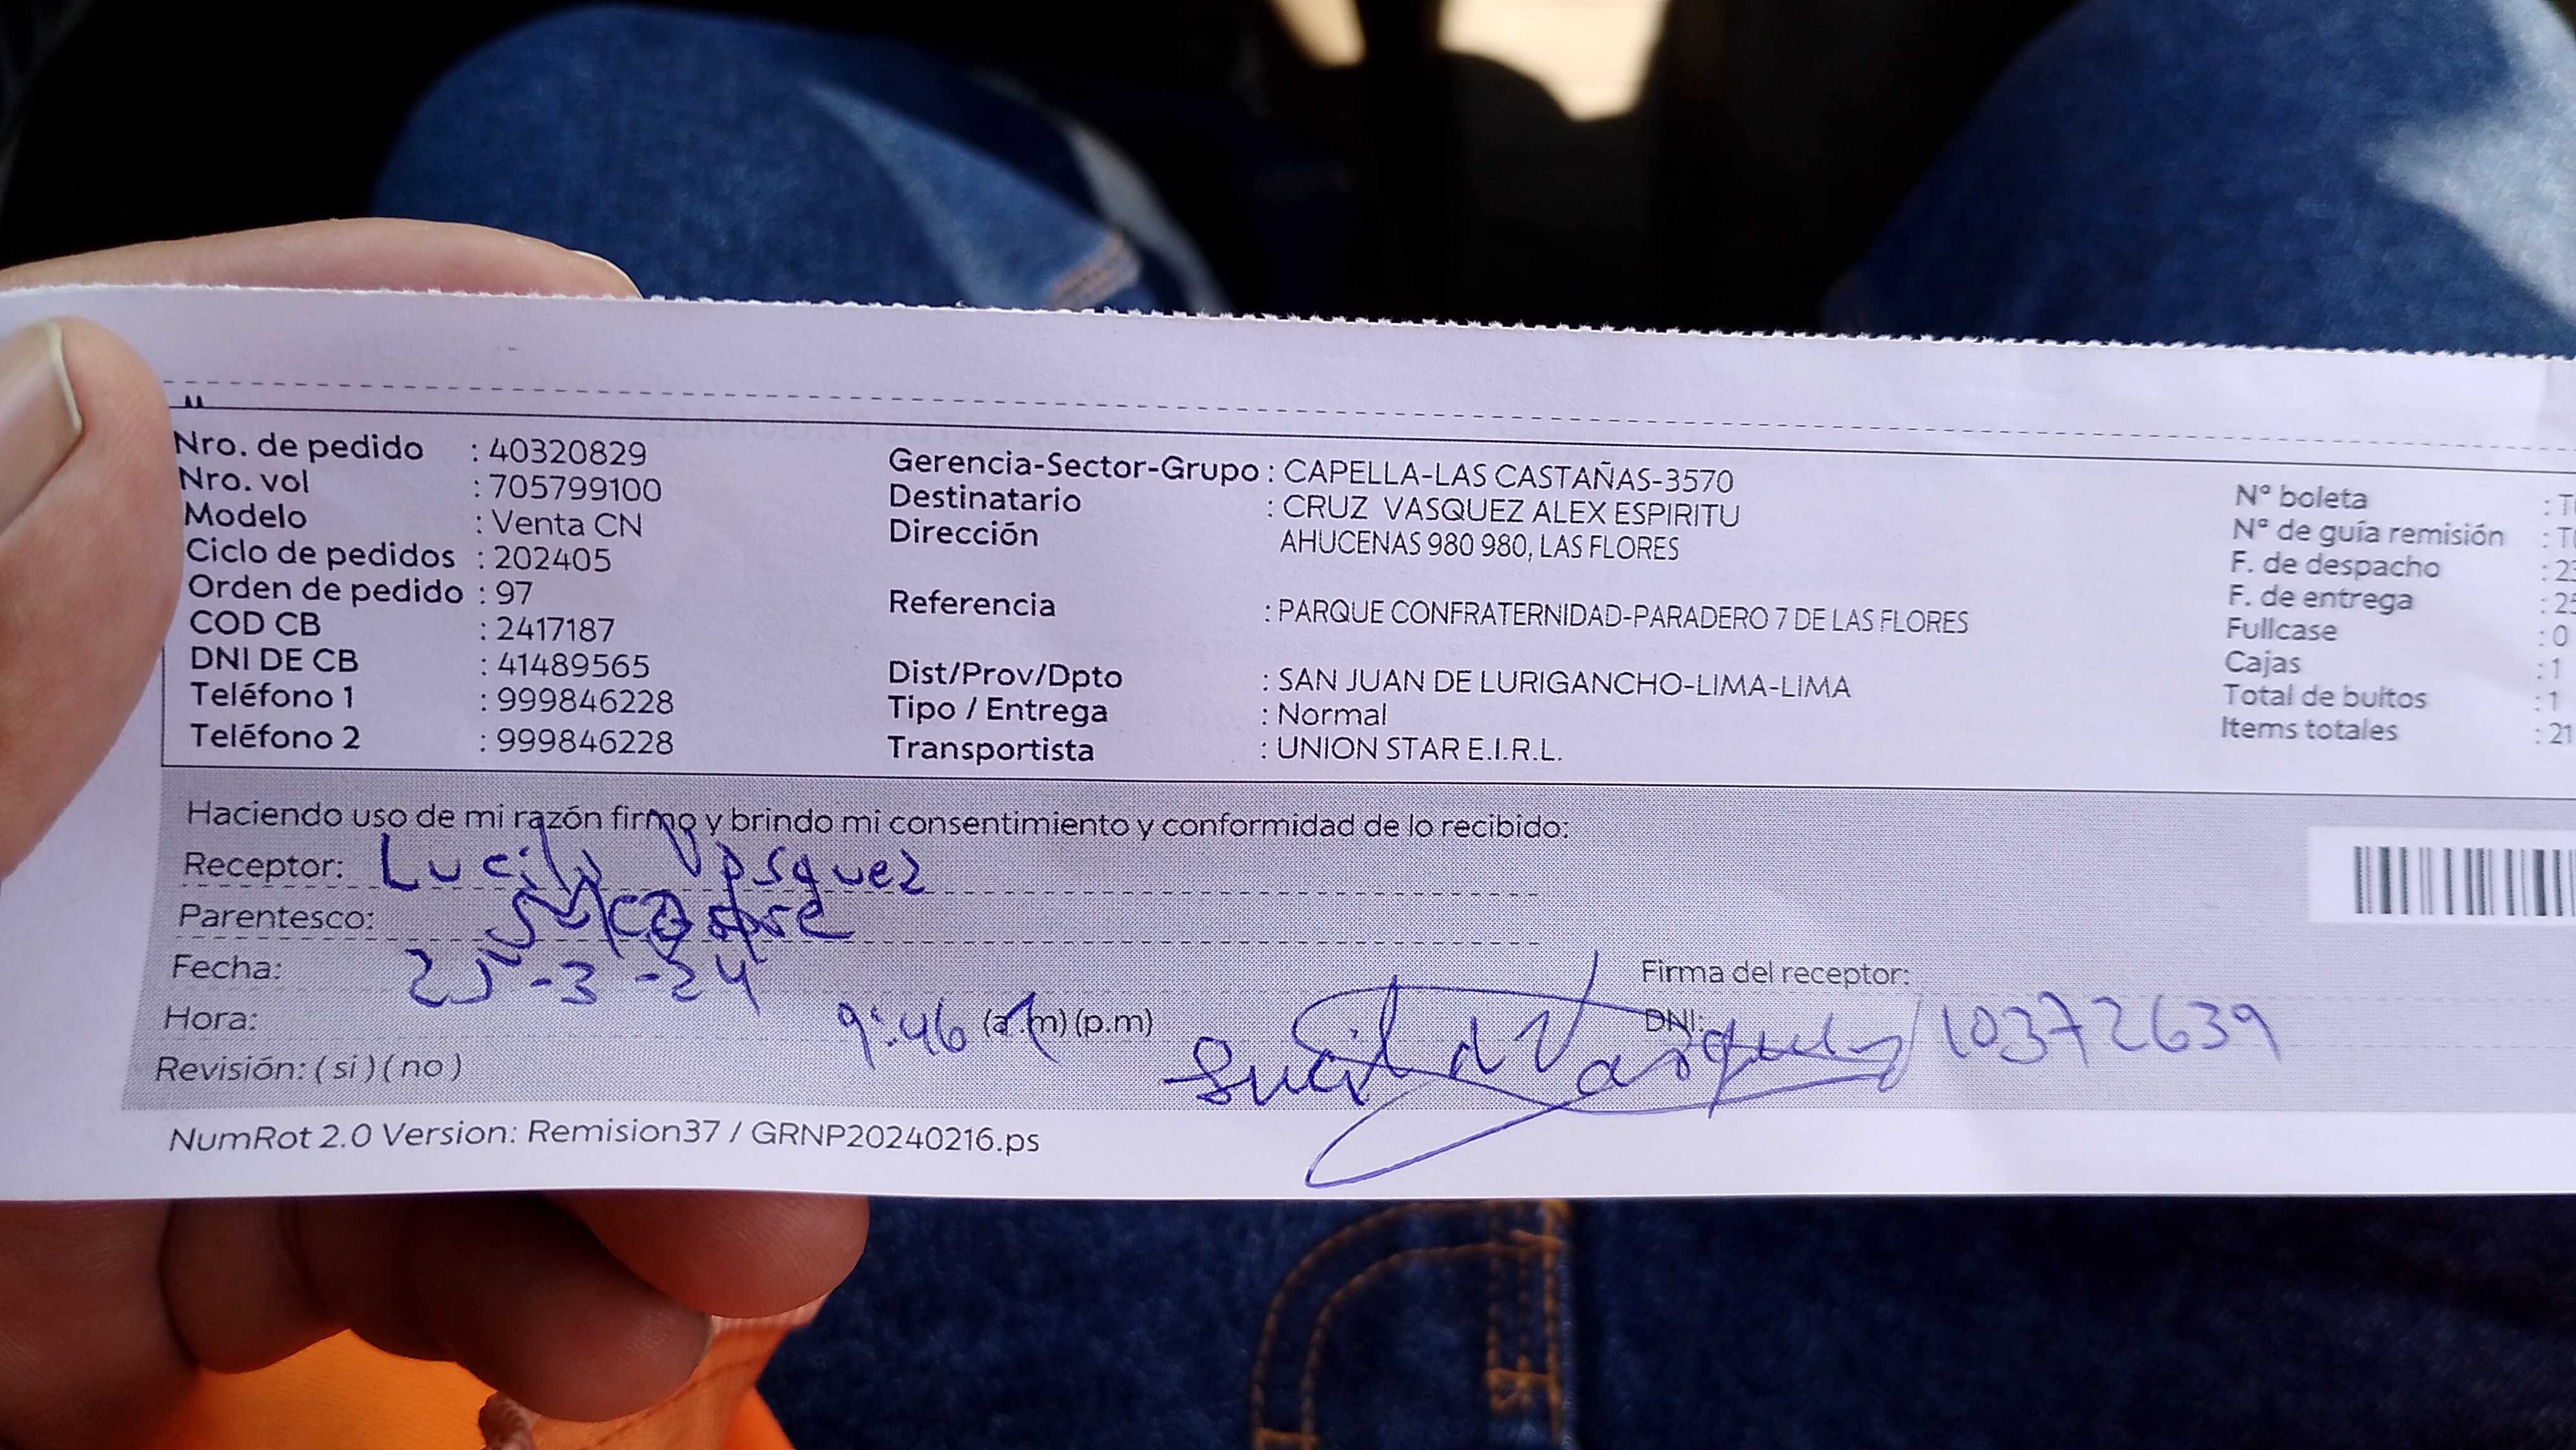 Nro. de pedido : 40320829
Nro. vol : 705799100
Modelo : Venta CN
Ciclo de pedidos : 202405
Orden de pedido : 97
COD CB : 2417187
DNI DE CB : 41489565
Teléfono 1 : 999846228
Teléfono 2 : 999846228
Gerencia-Sector-Grupo : CAPELLA-LAS CASTAÑAS-3570
Destinatario : CRUZ VASQUEZ ALEX ESPIRITU
Dirección AHUCENAS 980 980, LAS FLORES
Referencia : PARQUE CONFRATERNIDAD-PARADERO 7 DE LAS FLORES
Dist/Prov/Dpto : SAN JUAN DE LURIGANCHO-LIMA-LIMA
Tipo / Entrega : Normal
Transportista : UNION STAR E.I.R.L.
Nº boleta :
Nº de guía remisión :
F. de despacho : 23
F. de entrega : 25
Fullcase : 0
Cajas : 1
Total de bultos : 1
Items totales : 21
Haciendo uso de mi razón firmo y brindo mi consentimiento y conformidad de lo recibido:
Receptor: Lucila Vasquez
Parentesco:
Fecha: 25-3-24
Hora: 9:46 (a.m) (p.m)
Revisión: ( si ) ( no )
Firma del receptor:
DNI: 10372639
Lucila Vasquez
NumRot 2.0 Version: Remision37 / GRNP20240216.ps